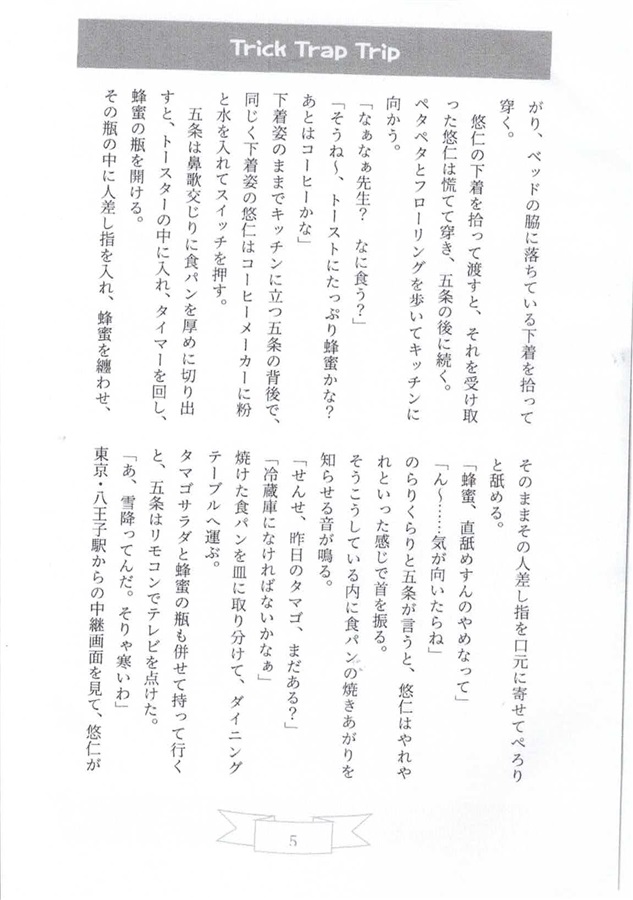 Trick Trap Trip
がり、ベッドの脇に落ちている下着を拾って
穿く。
悠仁の下着を拾って渡すと、それを受け取
った悠仁は慌てて穿き、五条の後に続く。
ペタペタとフローリングを歩いてキッチンに
向かう。
「なぁなぁ先生?　なに食う?」
「そうね〜、トーストにたっぷり蜂蜜かな?
あとはコーヒーかな」
下着姿のままでキッチンに立つ五条の背後で、
同じく下着姿の悠仁はコーヒーメーカーに粉
と水を入れてスイッチを押す。
五条は鼻歌交じりに食パンを厚めに切り出
すと、トースターの中に入れ、タイマーを回し、
蜂蜜の瓶を開ける。
その瓶の中に人差し指を入れ、蜂蜜を纏わせ、
そのままその人差し指を口元に寄せてぺろり
と舐める。
「蜂蜜、直舐めすんのやめなって」
「ん〜……気が向いたらね」
のらりくらりと五条が言うと、悠仁はやれや
れといった感じで首を振る。
そうこうしている内に食パンの焼きあがりを
知らせる音が鳴る。
「せんせ、昨日のタマゴ、まだある?」
「冷蔵庫になければないかなぁ」
焼けた食パンを皿に取り分けて、ダイニング
テーブルへ運ぶ。
タマゴサラダと蜂蜜の瓶も併せて持って行く
と、五条はリモコンでテレビを点けた。
「あ、雪降ってんだ。そりゃ寒いわ」
東京・八王子駅からの中継画面を見て、悠仁が
5